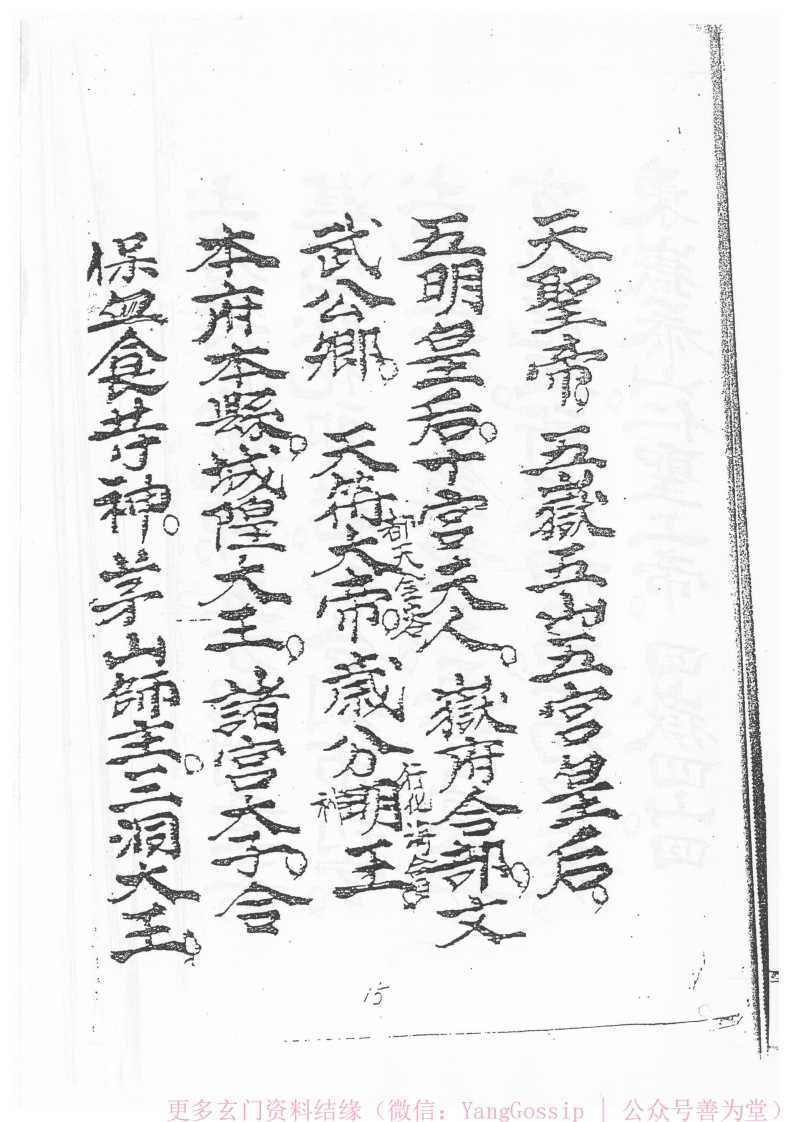 天聖帝。五嶽五山五宮皇后。
五明皇后。十宮夫人。嶽府合部文
武公卿。天符大帝。歲分明王
都天金容
行化
神
本府本縣。城隍大王。諸宮太子。合
保血食等神。茅山師主。三洞大王。
15
更多玄门资料结缘（微信：YangGossip | 公众号善为堂）